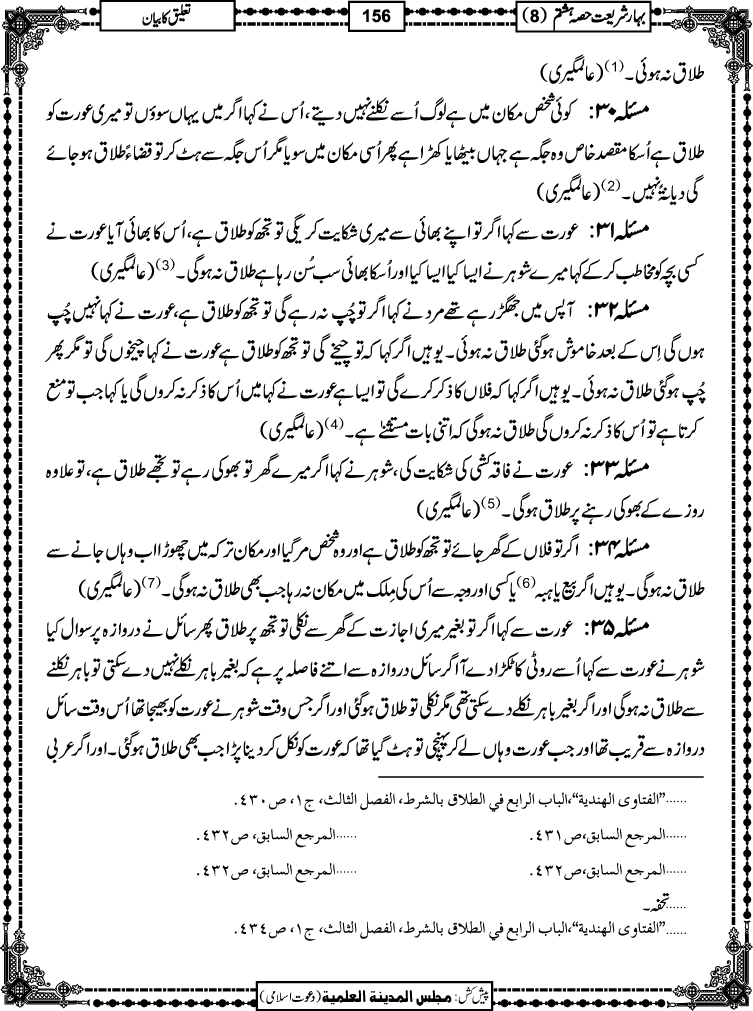 بہار شریعت حصہ ہشتم (8)
156
تعلیق کا بیان
طلاق نہ ہوئی۔(1) (عالمگیری)
مسئلہ ۳۰: کوئی شخص مکان میں ہے لوگ اُسے نکلنے نہیں دیتے، اُس نے کہا اگر میں یہاں سوؤں تو میری عورت کو
طلاق ہے اُسکا مقصد خاص وہ جگہ ہے جہاں بیٹھا یا کھڑا ہے پھر اُسی مکان میں سویا مگر اُس جگہ سے ہٹ کر تو قضاءً طلاق ہو جائے
گی دیانۃً نہیں۔(2) (عالمگیری)
مسئلہ ۳۱: عورت سے کہا اگر تو اپنے بھائی سے میری شکایت کریگی تو تجھ کو طلاق ہے، اُس کا بھائی آیا عورت نے
کسی بچہ کو مخاطب کر کے کہا میرے شوہر نے ایسا کیا ایسا کیا اور اُسکا بھائی سب سُن رہا ہے طلاق نہ ہوگی۔(3) (عالمگیری)
مسئلہ ۳۲: آپس میں جھگڑ رہے تھے مرد نے کہا اگر تو چُپ نہ رہے گی تو تجھ کو طلاق ہے، عورت نے کہا نہیں چُپ
ہوں گی اِس کے بعد خاموش ہوگئی طلاق نہ ہوئی۔ یوہیں اگر کہا کہ تو چیخے گی تو تجھ کو طلاق ہے عورت نے کہا چیخوں گی تو مگر پھر
چُپ ہوگئی طلاق نہ ہوئی۔ یوہیں اگر کہا کہ فلاں کا ذکر کرے گی تو ایسا ہے عورت نے کہا میں اُس کا ذکر نہ کروں گی یا کہا جب تو منع
کرتا ہے تو اُس کا ذکر نہ کروں گی طلاق نہ ہوگی کہ اتنی بات مستثنےٰ ہے۔(4) (عالمگیری)
مسئلہ ۳۳: عورت نے فاقہ کشی کی شکایت کی، شوہر نے کہا اگر میرے گھر تو بھوکی رہے تو تجھے طلاق ہے، تو علاوہ
روزے کے بھوکی رہنے پر طلاق ہوگی۔(5) (عالمگیری)
مسئلہ ۳۴: اگر تو فلاں کے گھر جائے تو تجھ کو طلاق ہے اور وہ شخص مر گیا اور مکان ترکہ میں چھوڑا اب وہاں جانے سے
طلاق نہ ہوگی۔ یوہیں اگر بیع یا ہبہ(6) یا کسی اور وجہ سے اُس کی مِلک میں مکان نہ رہا جب بھی طلاق نہ ہوگی۔(7) (عالمگیری)
مسئلہ ۳۵: عورت سے کہا اگر تو بغیر میری اجازت کے گھر سے نکلی تو تجھ پر طلاق پھر سائل نے دروازہ پر سوال کیا
شوہر نے عورت سے کہا اُسے روٹی کا ٹکڑا دے آ اگر سائل دروازہ سے اتنے فاصلہ پر ہے کہ بغیر باہر نکلے نہیں دے سکتی تو باہر نکلنے
سے طلاق نہ ہوگی اور اگر بغیر باہر نکلے دے سکتی تھی مگر نکلی تو طلاق ہوگئی اور اگر جس وقت شوہر نے عورت کو بھیجا تھا اُس وقت سائل
دروازہ سے قریب تھا اور جب عورت وہاں لے کر پہنچی تو ہٹ گیا تھا کہ عورت کو نکل کر دینا پڑا جب بھی طلاق ہوگئی۔ اور اگر عربی
......"الفتاوی الهندية"،الباب الرابع في الطلاق بالشرط، الفصل الثالث، ج۱، ص ٤٣٠.
......المرجع السابق،ص ٤٣١. ......المرجع السابق، ص ٤٣٢.
......المرجع السابق،ص ٤٣٢. ......المرجع السابق، ص ٤٣٢.
......تحفہ۔
......"الفتاوی الهندية"،الباب الرابع في الطلاق بالشرط، الفصل الثالث، ج۱، ص ٤٣٤.
پیش کش: مجلس المدینة العلمیة (دعوت اسلامی)